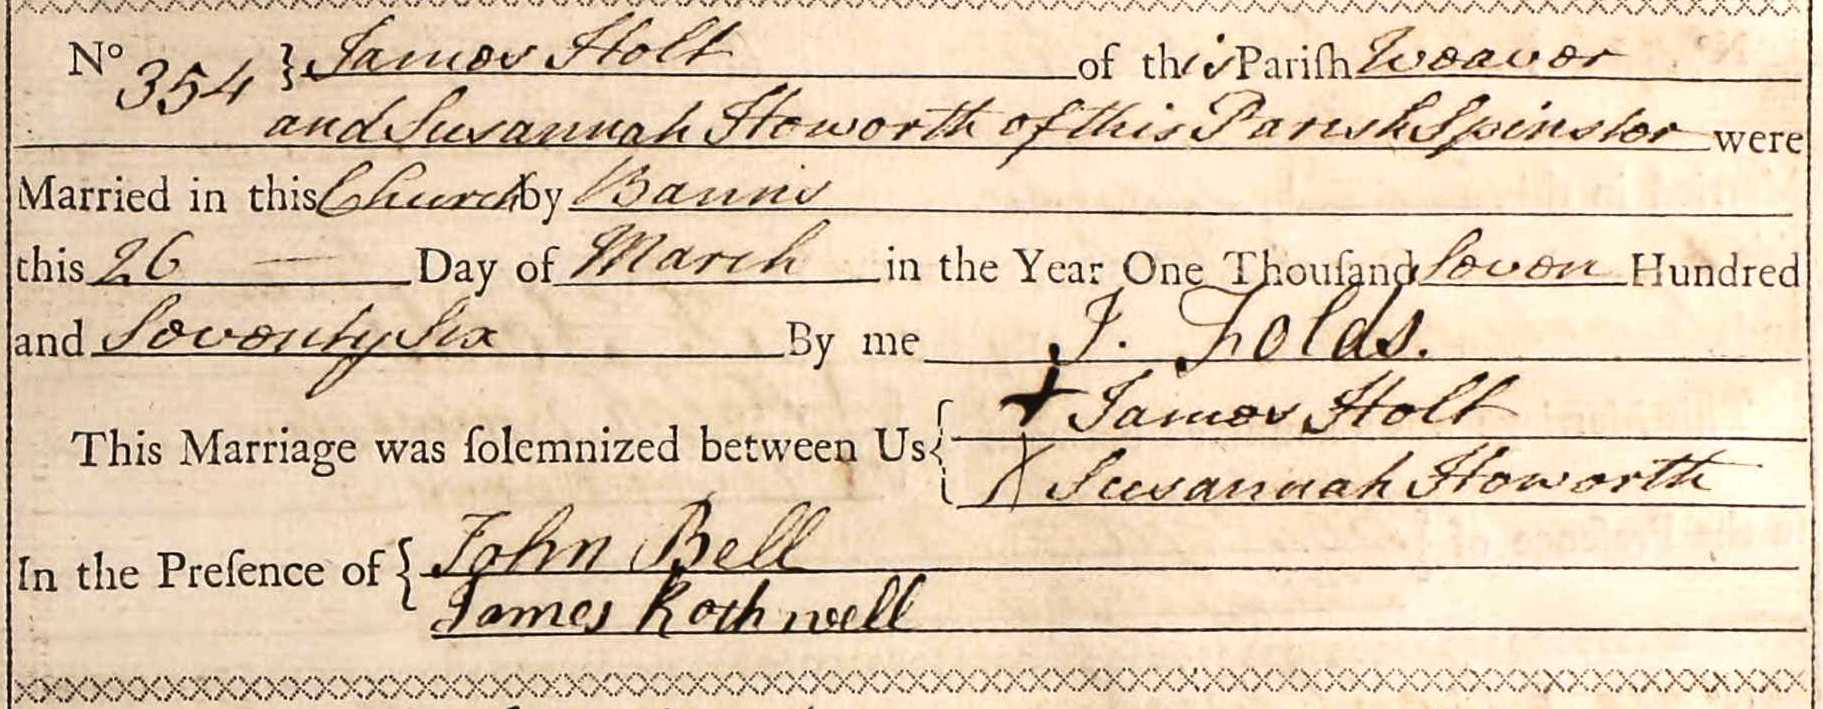 No 354 } James Holt of this Pariſh Weaver
and Susannah Howorth of this Parish Spinster were
Married in this Church by Banns
this 26 — Day of March in the Year One Thouſand Seven Hundred
and Seventy Six By me J. Folds.
This Marriage was ſolemnized between Us { + James Holt
X Susannah Howorth
In the Preſence of { John Bell
James Rothwell